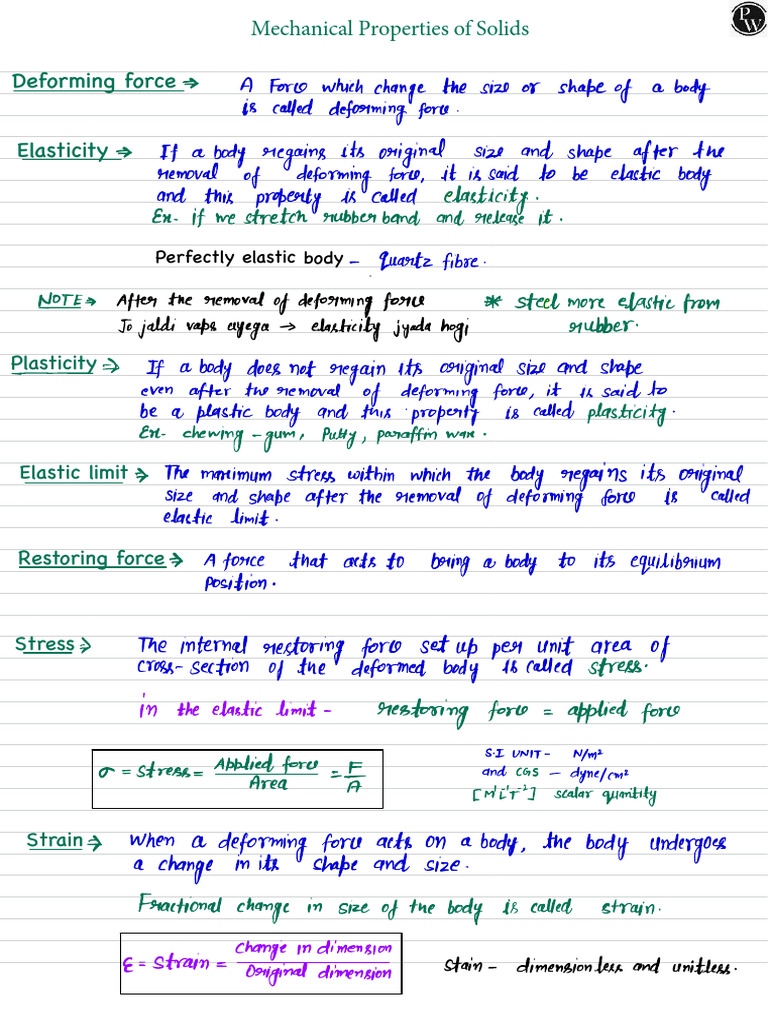 Mechanical Properties of Solids
PW
Deforming force → A Force which change the size or shape of a body
is called deforming force.
Elasticity → If a body regains its original size and shape after the
removal of deforming force, it is said to be elastic body
and this property is called elasticity.
Ex- if we stretch rubber band and release it.
Perfectly elastic body - quartz fibre.
NOTE → After the removal of deforming force
Jo jaldi vaps ayega → elasticity jyada hogi
* steel more elastic from
rubber.
Plasticity → If a body does not regain its original size and shape
even after the removal of deforming force, it is said to
be a plastic body and this property is called plasticity.
Ex- chewing-gum, Putty, paraffin wax.
Elastic limit → The maximum stress within which the body regains its original
size and shape after the removal of deforming force is called
elastic limit.
Restoring force → A force that acts to bring a body to its equilibrium
position.
Stress → The internal restoring force set up per unit area of
cross-section of the deformed body is called stress.
in the elastic limit - restoring force = applied force
σ = Stress = Applied force / Area = F / A
S.I UNIT - N/m²
and CGS - dyne/cm²
[M¹L⁻¹T⁻²] scalar quantity
Strain → When a deforming force acts on a body, the body undergoes
a change in its shape and size.
Fractional change in size of the body is called strain.
ε = Strain = Change in dimension / Original dimension
Stain - dimensionless and unitless.